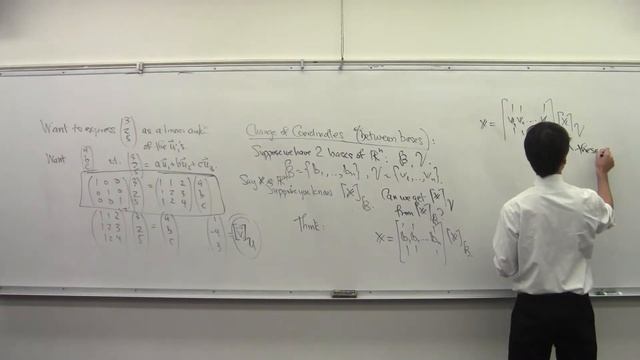 Want to express (3 2 5) as a linear comb.
of the u⃗ᵢ's.
Want (a b c) st.
(1 0 0 / 0 1 0 / 0 0 1) (3 2 5) = (1 1 2 / 1 2 3 / 1 2 4) (a b c)
(1 1 2 / 1 2 3 / 1 2 4) (3 2 5) = (a b c)
Change of Coordinates (between bases):
Suppose we have 2 bases of ℝⁿ: B, V.
B = {b₁, ..., bₙ}, V = {v₁, ..., vₙ}.
Say x in ℝⁿ
Suppose you know [x]_B.
Can we get [x]_V
from [x]_B?
Think:
x = [b₁ b₂ ... bₙ] [x]_B
x = [v₁ v₂ ... vₙ] [x]_V
these